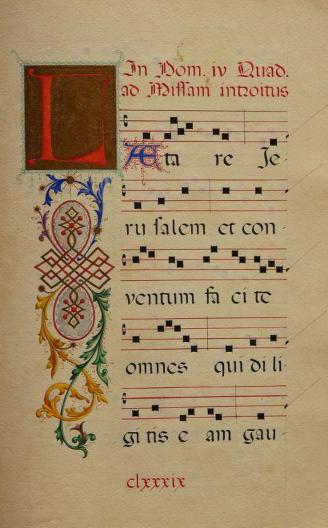 In Dom. iv Quad.
ad Missam introitus
LÆ ta re Je-
ru salem et con-
ventum fa ci te
omnes qui di li
gi tis e am gau-
clxxxix